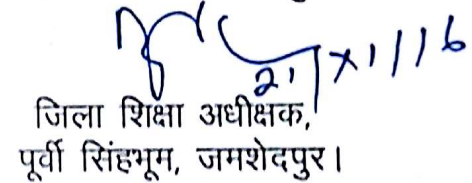 21/XI/16
जिला शिक्षा अधीक्षक,
पूर्वी सिंहभूम, जमशेदपुर।